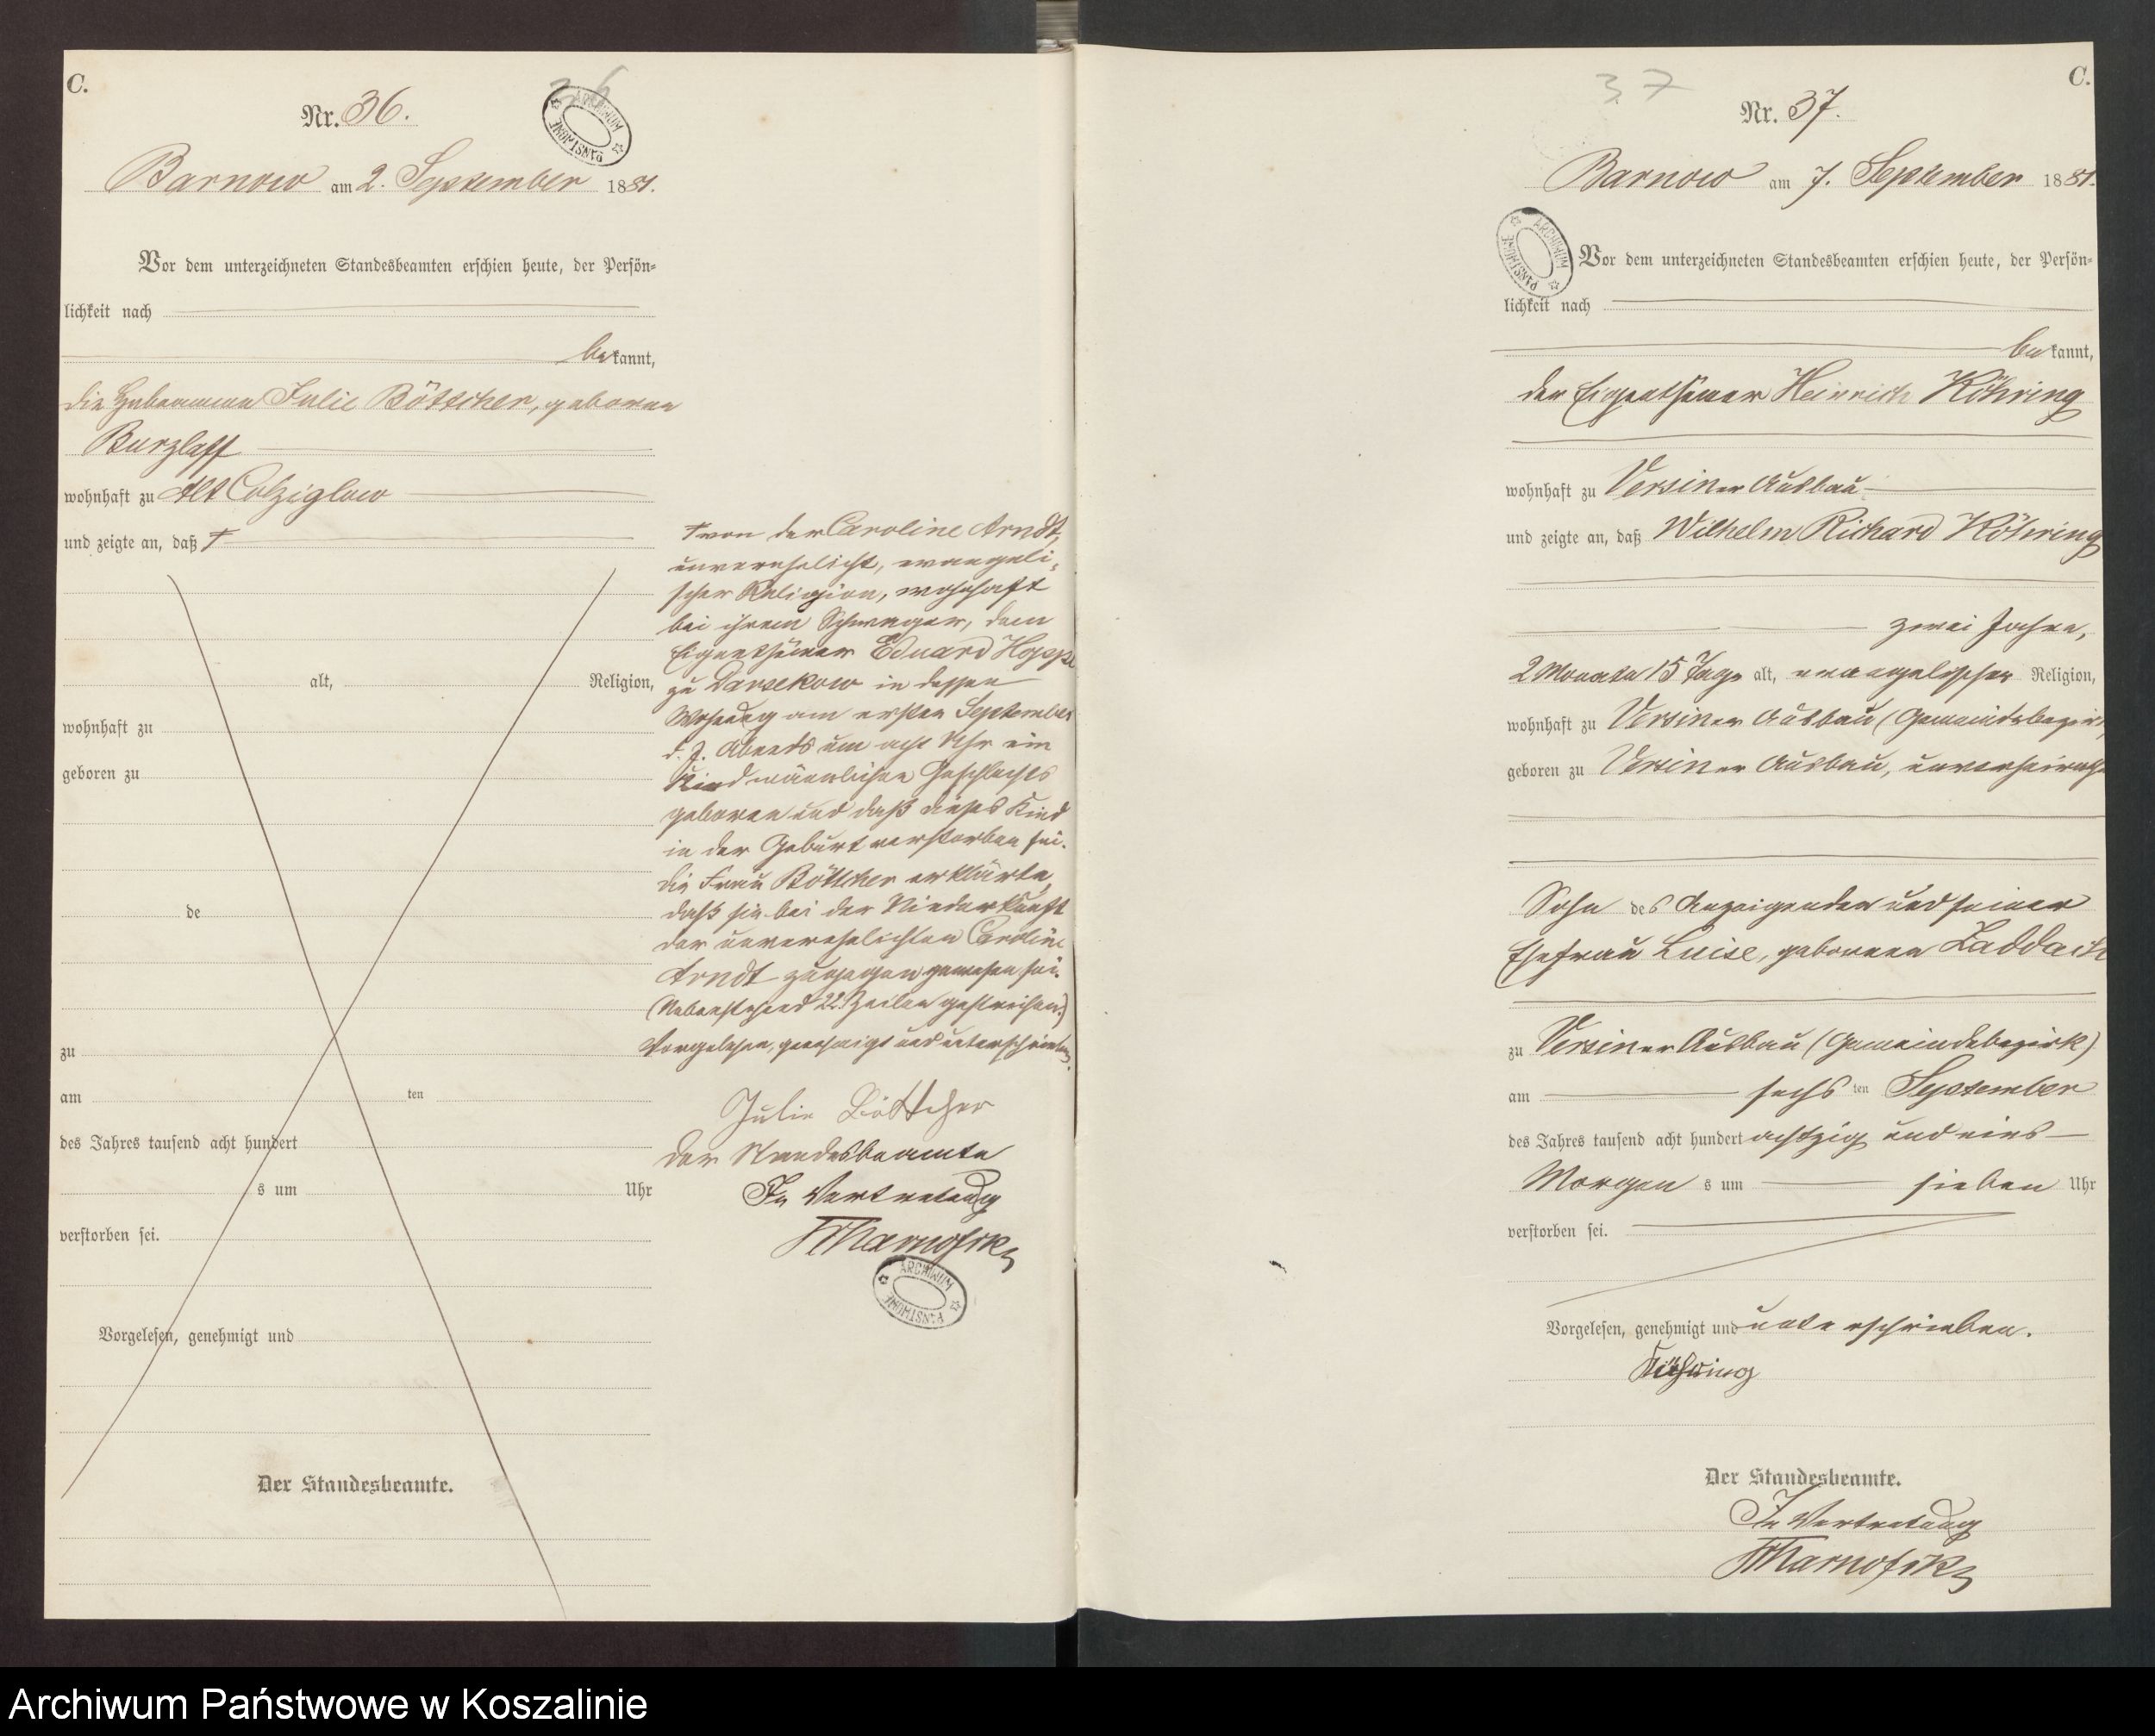 C.
Nr. 36.
36
ARCHIWUM PAŃSTWOWE
Barnow am 2. September 1881.
Vor dem unterzeichneten Standesbeamten erschien heute, der Persön-
lichkeit nach
bekannt,
die Hebamme Julie Böttcher, geborene
Burzlaff
wohnhaft zu Alt Colziglow
und zeigte an, daß †
alt, Religion,
wohnhaft zu
geboren zu
de
zu
am ten
des Jahres tausend acht hundert
s um Uhr
verstorben sei.
Vorgelesen, genehmigt und
Der Standesbeamte.
† von der Caroline Arndt,
unverehelicht, evangeli-
scher Religion, wohnhaft
bei ihrem Schwager, dem
Eigenthümer Eduard Hoppe
zu Darsekow in dessen
Wohnung am ersten September
d. J. Abends um acht Uhr ein
Kind männlichen Geschlechts
geboren und daß dieses Kind
in der Geburt verstorben sei.
Die Frau Böttcher erklärte,
daß sie bei der Niederkunft
der unverehelichten Caroline
Arndt zugegen gewesen sei.
(Nebenstehend 22 Zeilen gestrichen.)
Vorgelesen, genehmigt und unterschrieben.
Julie Böttcher
Der Standesbeamte
In Vertretung
ARCHIWUM PAŃSTWOWE
37
C.
Nr. 37.
Barnow am 7. September 1881.
ARCHIWUM PAŃSTWOWE
Vor dem unterzeichneten Standesbeamten erschien heute, der Persön-
lichkeit nach
bekannt,
der Eigenthümer Heinrich Köhring
wohnhaft zu Versiner Ausbau
und zeigte an, daß Wilhelm Richard Köhring
zwei Jahre,
2 Monate 15 Tage alt, evangelischer Religion,
wohnhaft zu Versiner Ausbau (Gemeindebezirk)
geboren zu Versiner Ausbau, unverheirathet
Sohn des Anzeigenden und seiner
Ehefrau Luise, geborenen Laddach
zu Versiner Ausbau (Gemeindebezirk)
am sechsten September
des Jahres tausend acht hundert achtzig und eins
Morgens um sieben Uhr
verstorben sei.
Vorgelesen, genehmigt und unterschrieben.
Köhring
Der Standesbeamte.
In Vertretung
Archiwum Państwowe w Koszalinie